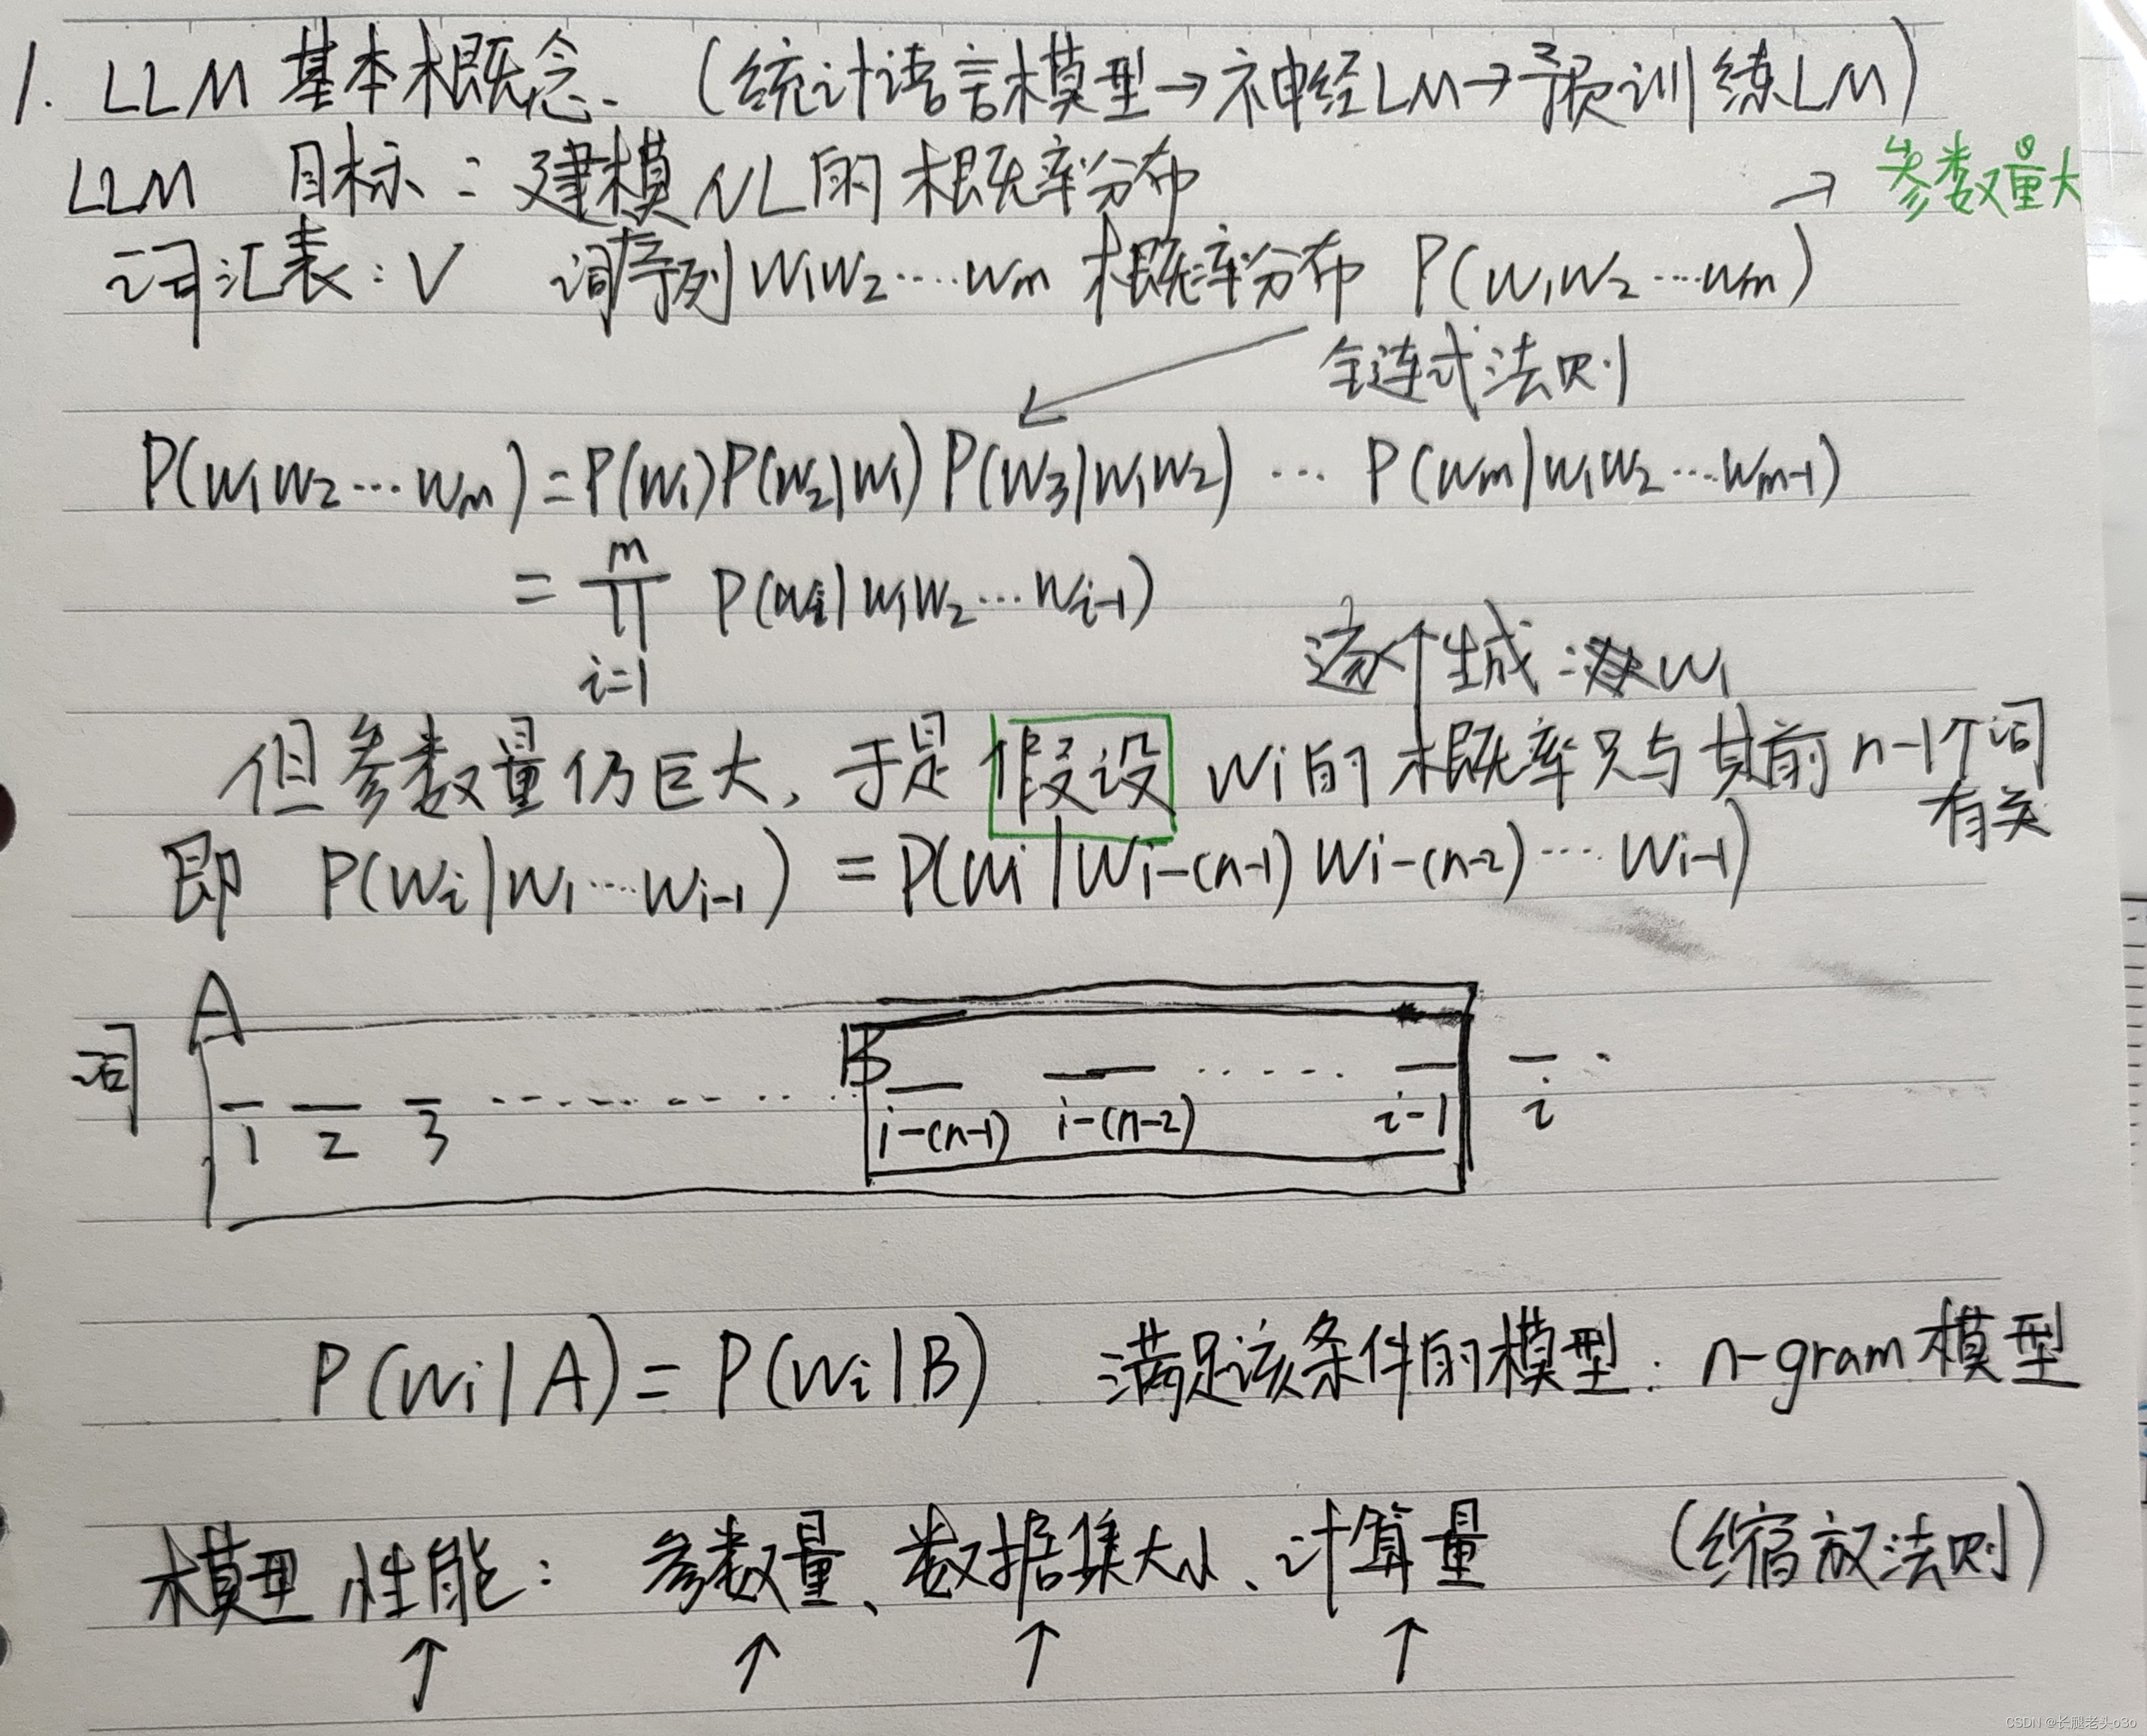 1. LLM 基本概念. (统计语言模型→神经LM→预训练LM)
LLM 目标: 建模NL的概率分布
→ 参数量大
词汇表: V 词序列 w₁w₂....wₘ 概率分布 P(w₁w₂...wₘ)
全连式法则
P(w₁w₂...wₘ)=P(w₁)P(w₂|w₁)P(w₃|w₁w₂) ... P(wₘ|w₁w₂...wₘ₋₁)
= ∏ᵢ₌₁ᵐ P(wᵢ|w₁w₂...wᵢ₋₁)
逐个生成: w₁
但参数量仍巨大, 于是假设 wi的概率只与其前n-1个词
有关
即 P(wᵢ|w₁...wᵢ₋₁) = P(wi|wi-(n-1) wi-(n-2)...wi-1)
A
词 B
1 2 3 ........ i-(n-1) i-(n-2) ...... i-1 i
P(wi|A)=P(wi|B) 满足该条件的模型: n-gram模型
模型性能: 参数量、数据集大小、计算量 (缩放法则)
↑ ↑ ↑ ↑
CSDN @长腿老头o3o